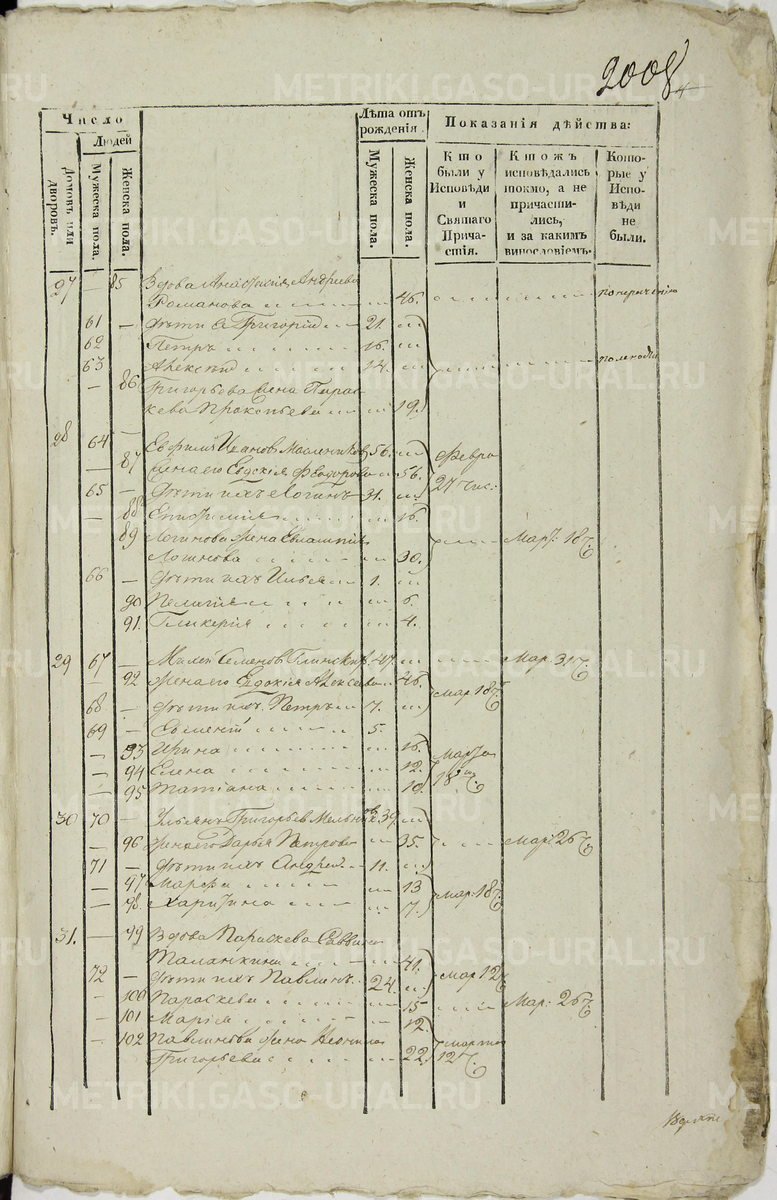 2008
Число
Людей
Домовъ или дворовъ.
Мужеска пола.
Женска пола.
Лѣта отъ рожденія.
Мужеска пола.
Женска пола.
Показанія дѣйства:
Кто были у Исповѣди и Святаго Прича-стія.
Ктожъ исповѣдались токмо, а не причасти-лись, и за какимъ винословіемъ.
Кото-рые у Испо-вѣди не были.
27 — 85 Вдова Анастасія Андреева
Романова 46.
61 — Дѣти ея Григорій 21.
62 Петръ 16.
63 Алексѣй 14.
— 86 Григорьева жена Парас-
кева Прокопьева 19.
28 64 — Евфимъ Ивановъ Масленников 56.
— 87 Жена его Евдокія Феодорова 56. февра 27 чис.
65 — Дѣти ихъ Логинъ 31.
— 88 Епифимія 16.
89 Логинова жена Евлампія
Логинова 30. Мар. 18
66 — Дѣти ихъ Илья 1.
90 Пелагія 6.
91. Гликерія 4.
29 67 — Семенов 47. Мар. 31
— 92 Жена его Евдокія Алексеева 46. Мар 18
68 — Дѣти ихъ Петръ 7.
69 — 5.
— 93 Ирина 16. Марта
— 94 Елена 12. 18
— 95 Татіана 10.
30 70 — Ульянъ Григорьев Мельников 39.
— 96 Жена его Дарья Петрова 35. Мар. 26
71 — Дѣти ихъ Андрей 11.
— 97 Марфа 13 Мар. 18
— 98. Харитина 7.
31. — 99 Вдова Параскева Саввина
Таланкина 41.
72 — Дѣти ихъ Павлинъ 24. Мар 12
— 100 Параскева 15 Мар. 26
— 101 Марія 12.
— 102 Павлинова жена
Григорьева 22. марта 12
METRIKI.GASO-URAL.RU